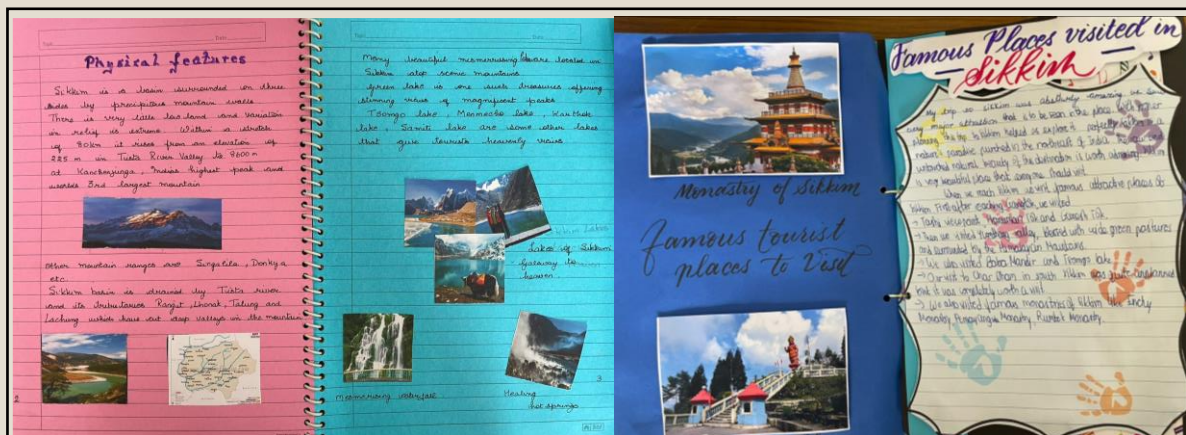 Physical features
Sikkim is a basin surrounded on three
sides by precipitous mountain walls
There is very little low land and variation
in relief is extreme. Within a stretch
of 80km it rises from an elevation of
225 m in Tista River Valley to 8600 m
at Kanchenjunga, Indias highest peak and
worlds 3rd largest mountain
other mountain ranges are Singalila, Donkya
etc.
Sikkim basin is drained by Tista river
and its tributaries Rangit, Lhonak, Talung and
Lachung which have cut deep valleys in the mountain
2
Many beautiful mesmerising lakes are located in
Sikkim atop scenic mountains
Green lake is one such treasures offering
stunning views of magnificent peaks
Tsongo lake, Menmecho lake, Kauthok
lake, Samiti lake are some other lakes
that give tourists heavenly views
Sikkim Lakes
Lakes of Sikkim
- Gateway to
heaven
Mesmerising waterfall
Healing
hot springs
3
Monastry of Sikkim
Famous tourist
places to Visit
Famous Places visited in
Sikkim
My trip to Sikkim was absolutely amazing we saw
every major attraction that is to be seen in the place
planning the trip to Sikkim helped us explore it
nature's paradise perched in the northeast of India
untouched natural beauty of the destination is worth
is very beautiful place that everyone should visit
When we reach Sikkim we visit famous attractive places of
Sikkim First after reaching Gangtok, we visited
→ Tashi viewpoint, Hanuman Tok and Ganesh Tok
→ Then we visited Yumthang valley, blessed with wide green pastures
and surrounded by the Himalayan Mountains.
→ We also visited Baba Mandir and Tsomgo lake
→ Our visit to Char Dham in south Sikkim was quite
but it was completely worth a visit
→ We also visited famous monastries of Sikkim like Enchy
Monastry, Pemayangtse Monastry, Rumtek Monastry.